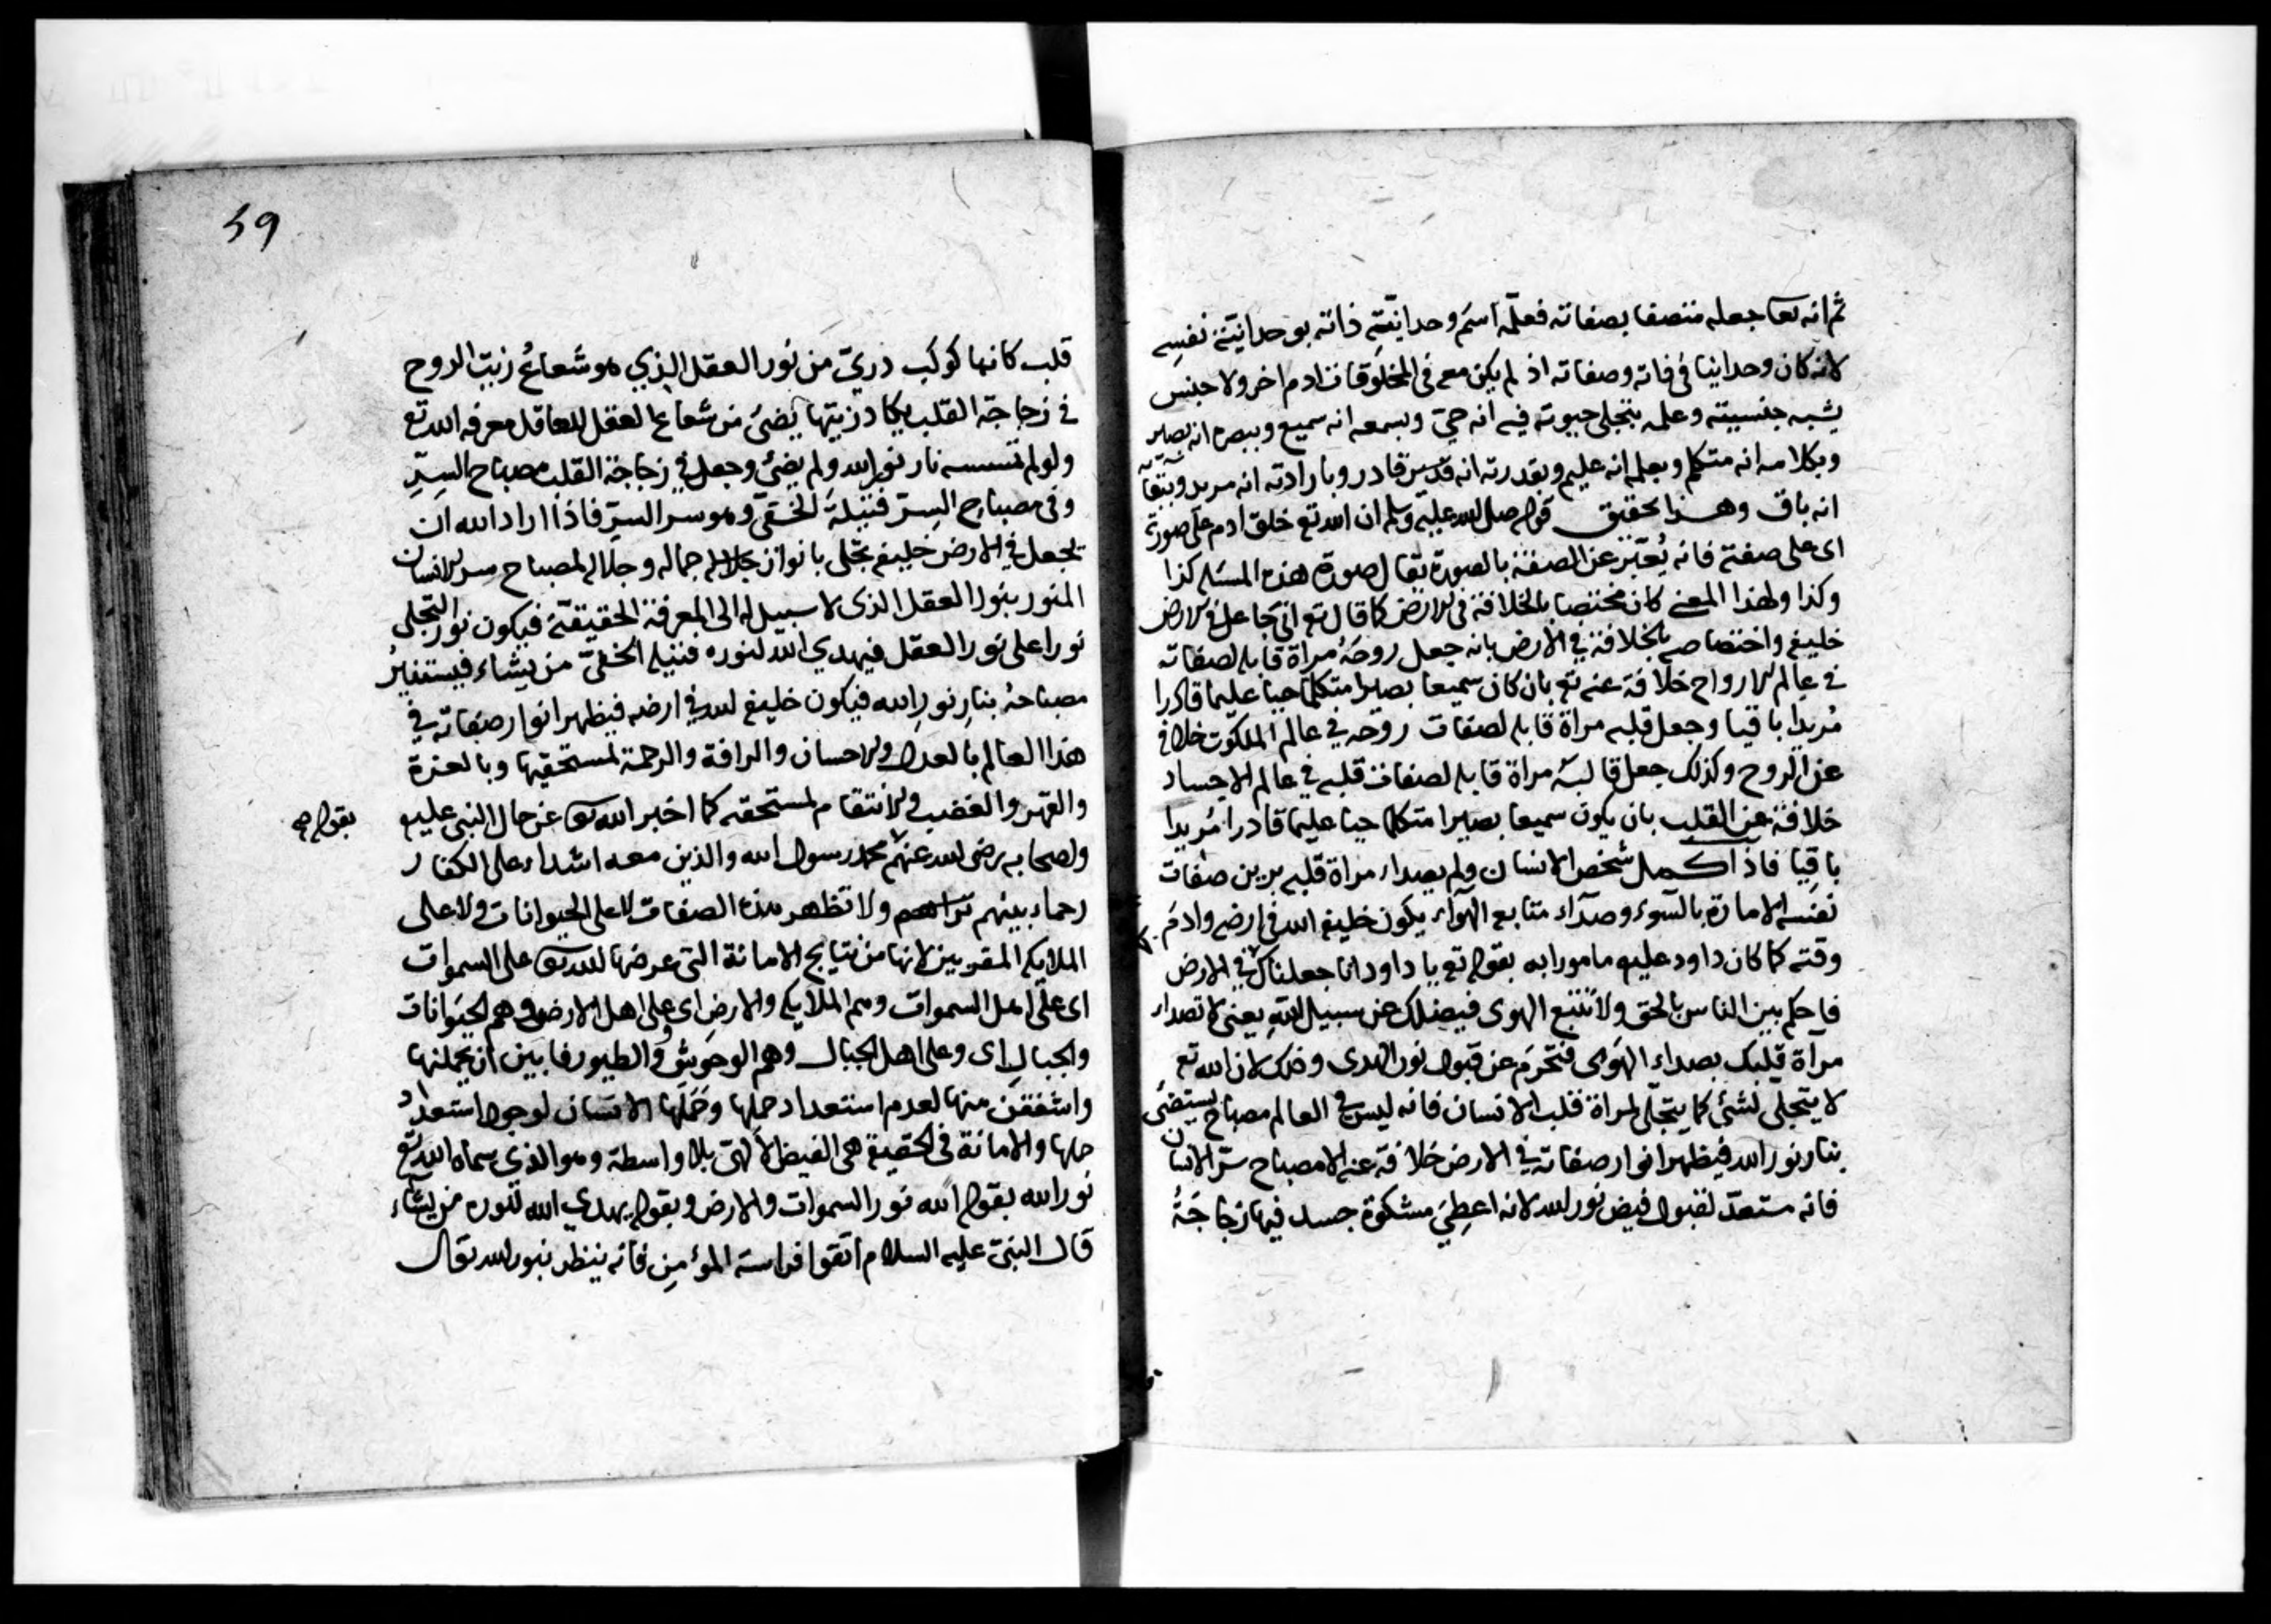 ثم انه تعا جعله متصفا بصفاته فعلّمه اسم وحدانيّة ذاته بوحدانيّة نفسِه
لانه كان وحدانيا فى ذاته وصفاته اذ لم يكن معه فى المخلوقات ادم اخر ولا جنس
يشبه جنسيته وعلمه بتجلى حيوته فيه انه حيّ وبسمعه انه سميع وببصره انه بصير
وبكلامه انه متكلم وبعلمه انه عليم وبقدرته انه قدير قادر وبارادته انه مريد وببقائه
انه باق وهذا تحقيق قوله صلى الله عليه وسلم ان الله تع خلق ادم على صورته
اى على صفته فانه يُعَبّر عن الصفة بالصورة يقال صورة هذه المسئله كذا
وكذا ولهذا المعنى كان مختصا بالخلافة فى الارض كما قال تع انى جاعل فى الارض
خليفة واختصاصه بالخلافة في الارض بانه جعل روحَهُ مراة قابله لصفاته
في عالم الارواح خلافة عنه تع بان كان سميعا بصيرا متكلما حيا عليما قادرا
مُريدا باقيا وجعل قلبه مراة قابله لصفات روحه في عالم الملكوت خلافة
عن الروح وكذلك جعل قالبه مراة قابله لصفات قلبه في عالم الاجساد
خلافة عن القلب بان يكون سميعا بصيرا متكلما حيا عليما قادرا مُريدا
باقيا فاذا كمل شخص الانسان ولم يصداء مراة قلبه برين صفات
نفسه الامارة بالسوء وصداء متابع الهوآء يكون خليفة الله فى ارضه وادمَ
وقته كما كان داود عليه مامورا به بقوله تع يا داود انا جعلناك فى الارض
فاحكم بين الناس بالحق ولا تتبع الهوى فيضلك عن سبيل اللهِ يعنى لا تصداء
مرآة قلبك بصداء الهَوى فتحرَم عن قبول نور الهدى وذلك لان الله تع
لا يتجلى لشئ كما يتجلى لمراة قلب الانسان فانه ليس فى العالم مصباح يستضئ
بنار نور الله فيظهر انوار صفاته في الارض خلافة عنه الا مصباح سرّ الانسان
فانه مستعدّ لقبول فيض نور الله لانه اعطِيَ مشكوة جسد فيها زجاجَةُ
59
قلب كانها كوكب دريّ من نور العقل الذي هو شعاعُ زيتِ الروح
في زجاجة القلب يكاد زيتها يضئ من شعاع العقل للعاقل معرفه الله تع
ولو لم تمسسه نار نور الله ولم يضئ وجعل في زجاجة القلب مصباح السِرِّ
وفى مصباح السِرّ فتيلةَ الخفىّ وهو سر السِرّ فاذا اراد الله ان
يجعل في الارض خليفه تجلى بانوار جماله وجلاله لمصباح سر الانسان
المنور بنور العقل الذى لا سبيل له الى المعرفة الحقيقيّة فيكون نور التجلى
نورا على نور العقل فيهدي الله لنوره فتيلة الخفىّ من يشاء فيستنيرُ
مصباحهُ بنارِ نورِ الله فيكون خليفة لله في ارضه فيظهر انوار صفاته في
هذا العالم بالعدل والاحسان والرافة والرحمة لمستحقيها وبالعزة
والقهر والغضب والانتقام لمستحقه كما اخبر الله تعا عن حال النبى عليه
بقوله
واصحابه رضى الله عنهم محمد رسول الله والذين معه اشداء على الكفار
رحماء بينهم تراهم ولا تظهر هذه الصفات لا على الحيوانات ولا على
الملايكة المقربين لانها من نتايج الامانة التى عرضها الله تعا على السموات
اى على اهل السموات وهم الملايكه والارض اى على اهل الارض وهم الحيوانات
والجبال اى وعلى اهل الجبال وهم الوحوش والطيور فابين ان يحملنها
واشفقن منها لعدم استعداد حملها وحَمَلها الانسان لوجود استعداد
حملها والامانة فى الحقيقة هى الفيض الالهىّ بلا واسطة وهو الذى سماه الله تع
نور الله بقوله الله نور السموات والارض وبقوله يهدى الله لنوره من يشاء
قال النبىّ عليه السلام اتقوا فراسة المؤمِن فانه ينظر بنور الله تعال